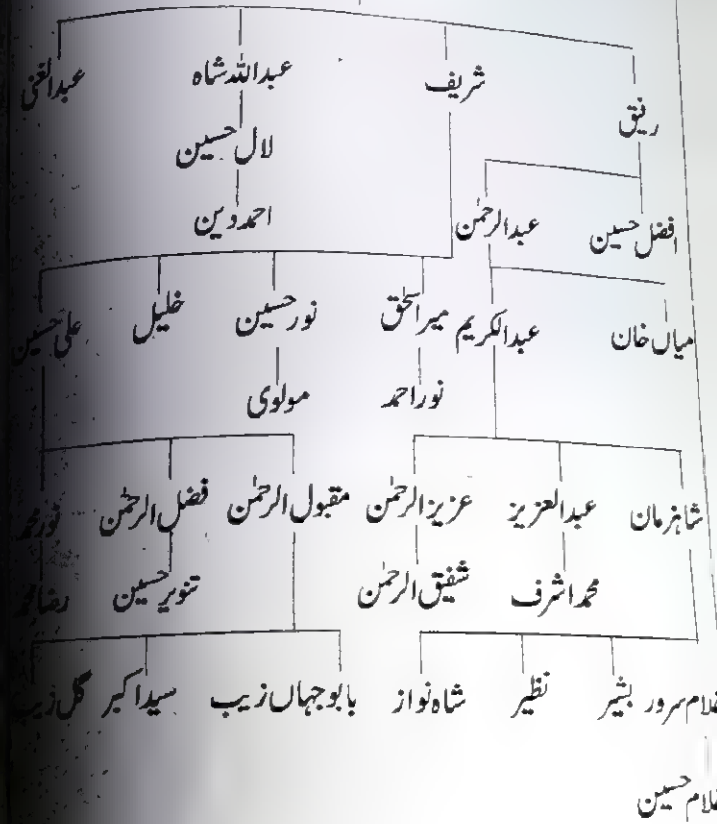 رفیق شریف عبداللہ شاہ عبدالغنی
لال حسین
افضل حسین عبدالرحمٰن احمد دین
میاں خان عبدالکریم میر اسحٰق نور حسین خلیل علی حسین
نور احمد مولوی
شاہزمان عبدالعزیز عزیز الرحمٰن مقبول الرحمٰن فضل الرحمٰن نور محمد
محمد اشرف شفیق الرحمٰن تنویر حسین
غلام سرور بشیر نظیر شاہ نواز بابو جہاں زیب سید اکبر گل زیب
غلام حسین